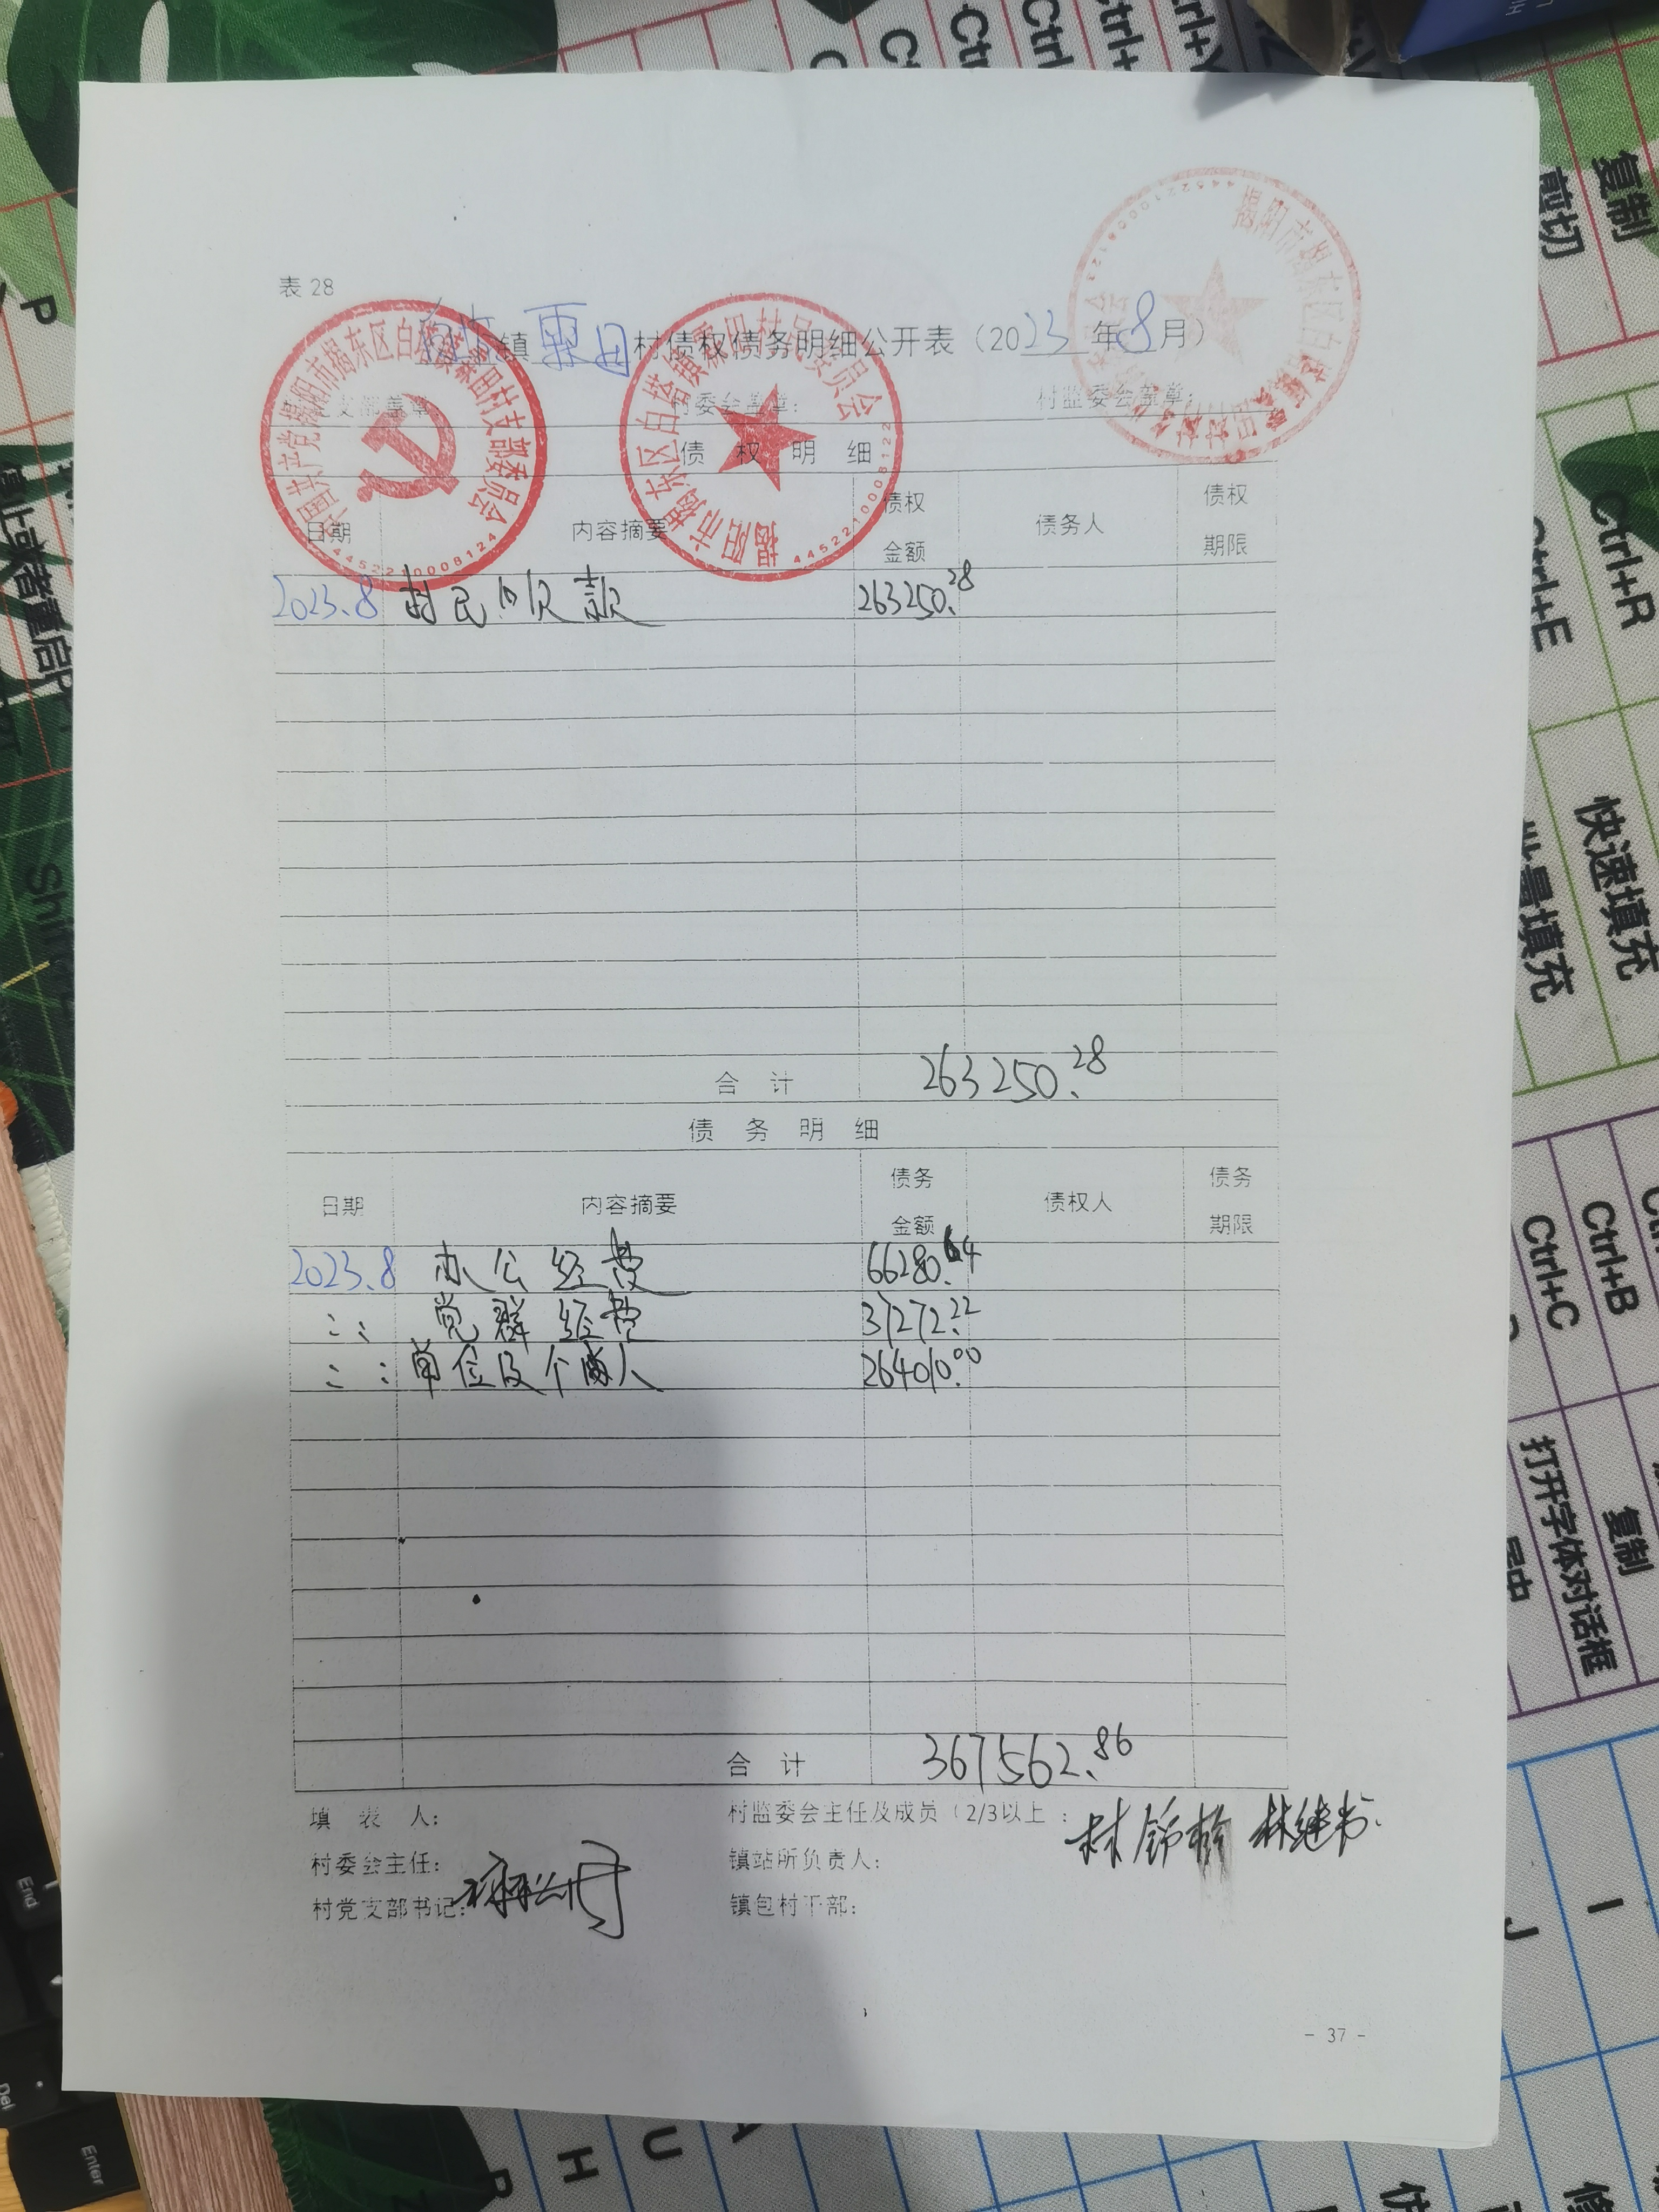 表 28
白塔镇霖田村债权债务明细公开表（2023年8月）
党支部盖章: 村委会盖章: 村监委会盖章:
中国共产党揭阳市揭东区白塔镇霖田村支部委员会
4452210008124
揭阳市揭东区白塔镇霖田村民委员会
4452210008122
揭阳市揭东区白塔镇霖田村
债 权 明 细
日期 内容摘要 债权金额 债务人 债权期限
2023.8 村民旧欠款 263250.28
合 计 263250.28
债 务 明 细
日期 内容摘要 债务金额 债权人 债务期限
2023.8 办公经费 66280.64
:: 党群经费 37272.22
:: 单位及个人 264010.00
合 计 367562.86
填 表 人: 村监委会主任及成员（2/3以上: 林 林
村委会主任: 镇站所负责人:
村党支部书记: 镇包村干部:
- 37 -
剪切
复制
Ctrl+E
Ctrl+R
批量填充
快速填充
Ctrl+C
Ctrl+B
打开字体对话框
复制
P
Shi
End
Del
Enter
H
U
J
I